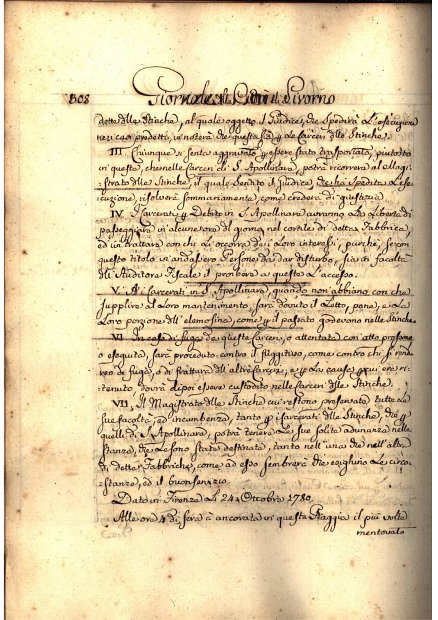 308 Giornale della Città di Livorno
dette delle Stinche, al quale oggetto il Giudice, che spedirà l'esecuzione
nei casi predetti, noterà di questa sia per le Carceri delle Stinche.
III Chiunque si senta aggravato per essere stato trasportato, piuttosto
in questa, che nelle Carceri di S. Apollinara, potrà ricorrere al Magi-
strato delle Stinche, il quale sentito il Giudice, che ha spedita l'ese-
cuzione, risolverà sommariamente, come crederà di giustizia
IV. I Carcerati per Debito in S. Apollinara avranno la libertà di
passeggiare in alcune ore del giorno nel cortile di detta Fabbrica,
ed in trattare con chi l'occorra de i loro interessi, purchè, se con
questo titolo vi andassero Persone da dar disturbo, sia in facoltà
dell'Auditore Fiscale il proibire a queste l'accesso.
V. Ai Carcerati in S. Apollinara, quando non abbiano con che
supplire al loro mantenimento, sarà dovuto il Letto, pane, e la
loro porzione dell'elemosine, come per il passato godevano nelle Stinche.
VI In caso di fuga da queste Carceri, o attentata con atto prossimo
o eseguita, sarà proceduto contro il fuggitivo, come contro chi si rende
reo di fuga, o di frattura dell'altre carceri, e per la causa per cui era ri-
tenuto dovrà dipoi essere custodito nelle Carceri delle Stinche.
VII. Il Magistrato delle Stinche cui restono preservate tutte le
sue facoltà, ed incumbenze, tanto per i carcerati delle Stinche, che per
quelli di S. Apollinara, potrà tenere le sue solite adunanze nelle
stanze, che le sono state destinate, tanto nell'una che nell'altra
di dette Fabbriche, come ad esso sembrerà che esighino le circo-
stanze, ed il buon servizio.
Dato in Firenze li 24. Ottobre 1780.
Alle ore 4 di sera è ancorata in questa Spiaggia il più volte
mentovato